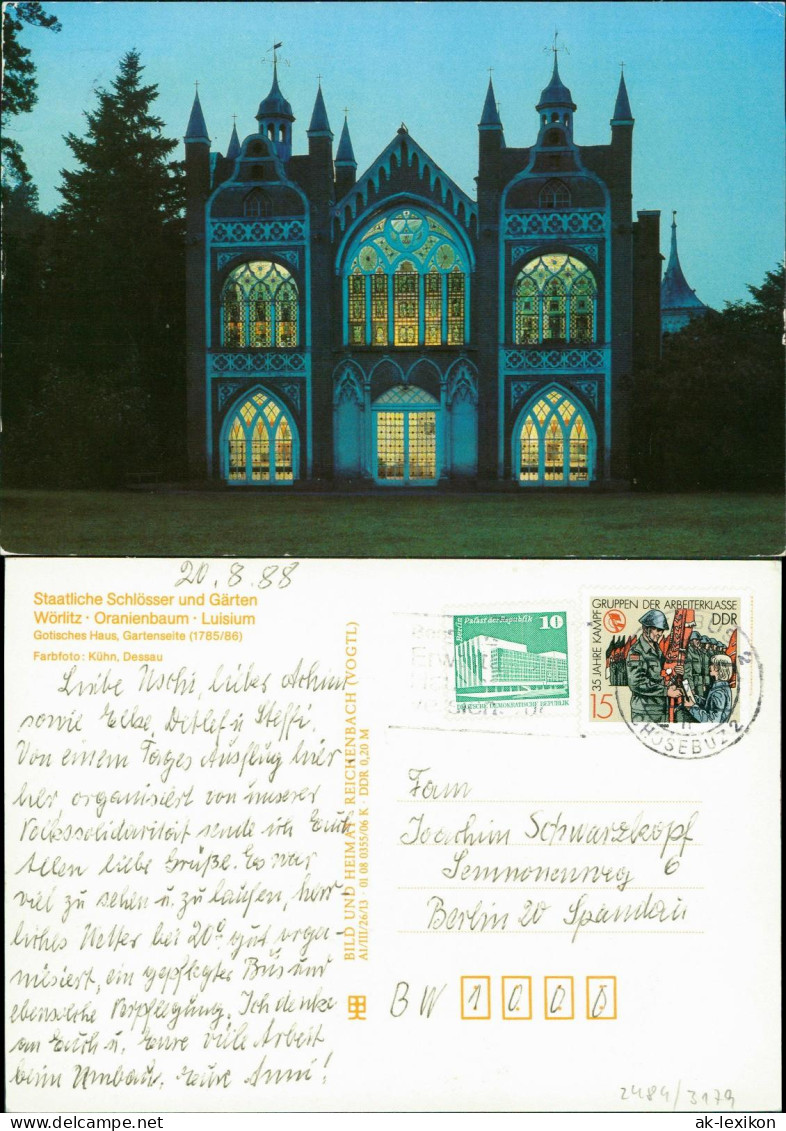 20.8.88
Staatliche Schlösser und Gärten
Wörlitz · Oranienbaum · Luisium
Gotisches Haus, Gartenseite (1785/86)
Farbfoto: Kühn, Dessau
Liebe Uschi, lieber Achim
sowie Elke, Detlef u. Steffi.
Von einem Tages Ausflug hier
her organisiert von unserer
Volkssolidarität sende ich Euch
Allen liebe Grüße. Es war
viel zu sehen u. zu laufen, herr
liches Wetter bei 20° gut orga-
nisiert, ein gepflegter Bus und
ebensolche Verpflegung. Ich denke
an Euch u. Eure viele Arbeit
beim Umbau. Eure Anni!
BILD UND HEIMAT REICHENBACH (VOGTL)
A1/III/26/13 · 01 08 0355/06 K · DDR 0,20 M
Berlin Palast der Republik 10
DEUTSCHE DEMOKRATISCHE REPUBLIK
35 JAHRE KAMPFGRUPPEN DER ARBEITERKLASSE
DDR
15
CHOSEBUZ 2
Fam
Joachim Schwarzkopf
Semnonenweg 6
Berlin 20 Spandau
BW 1000
2484/3179
ak-ansichtskarten.de
ak-lexikon
Delcampe.net